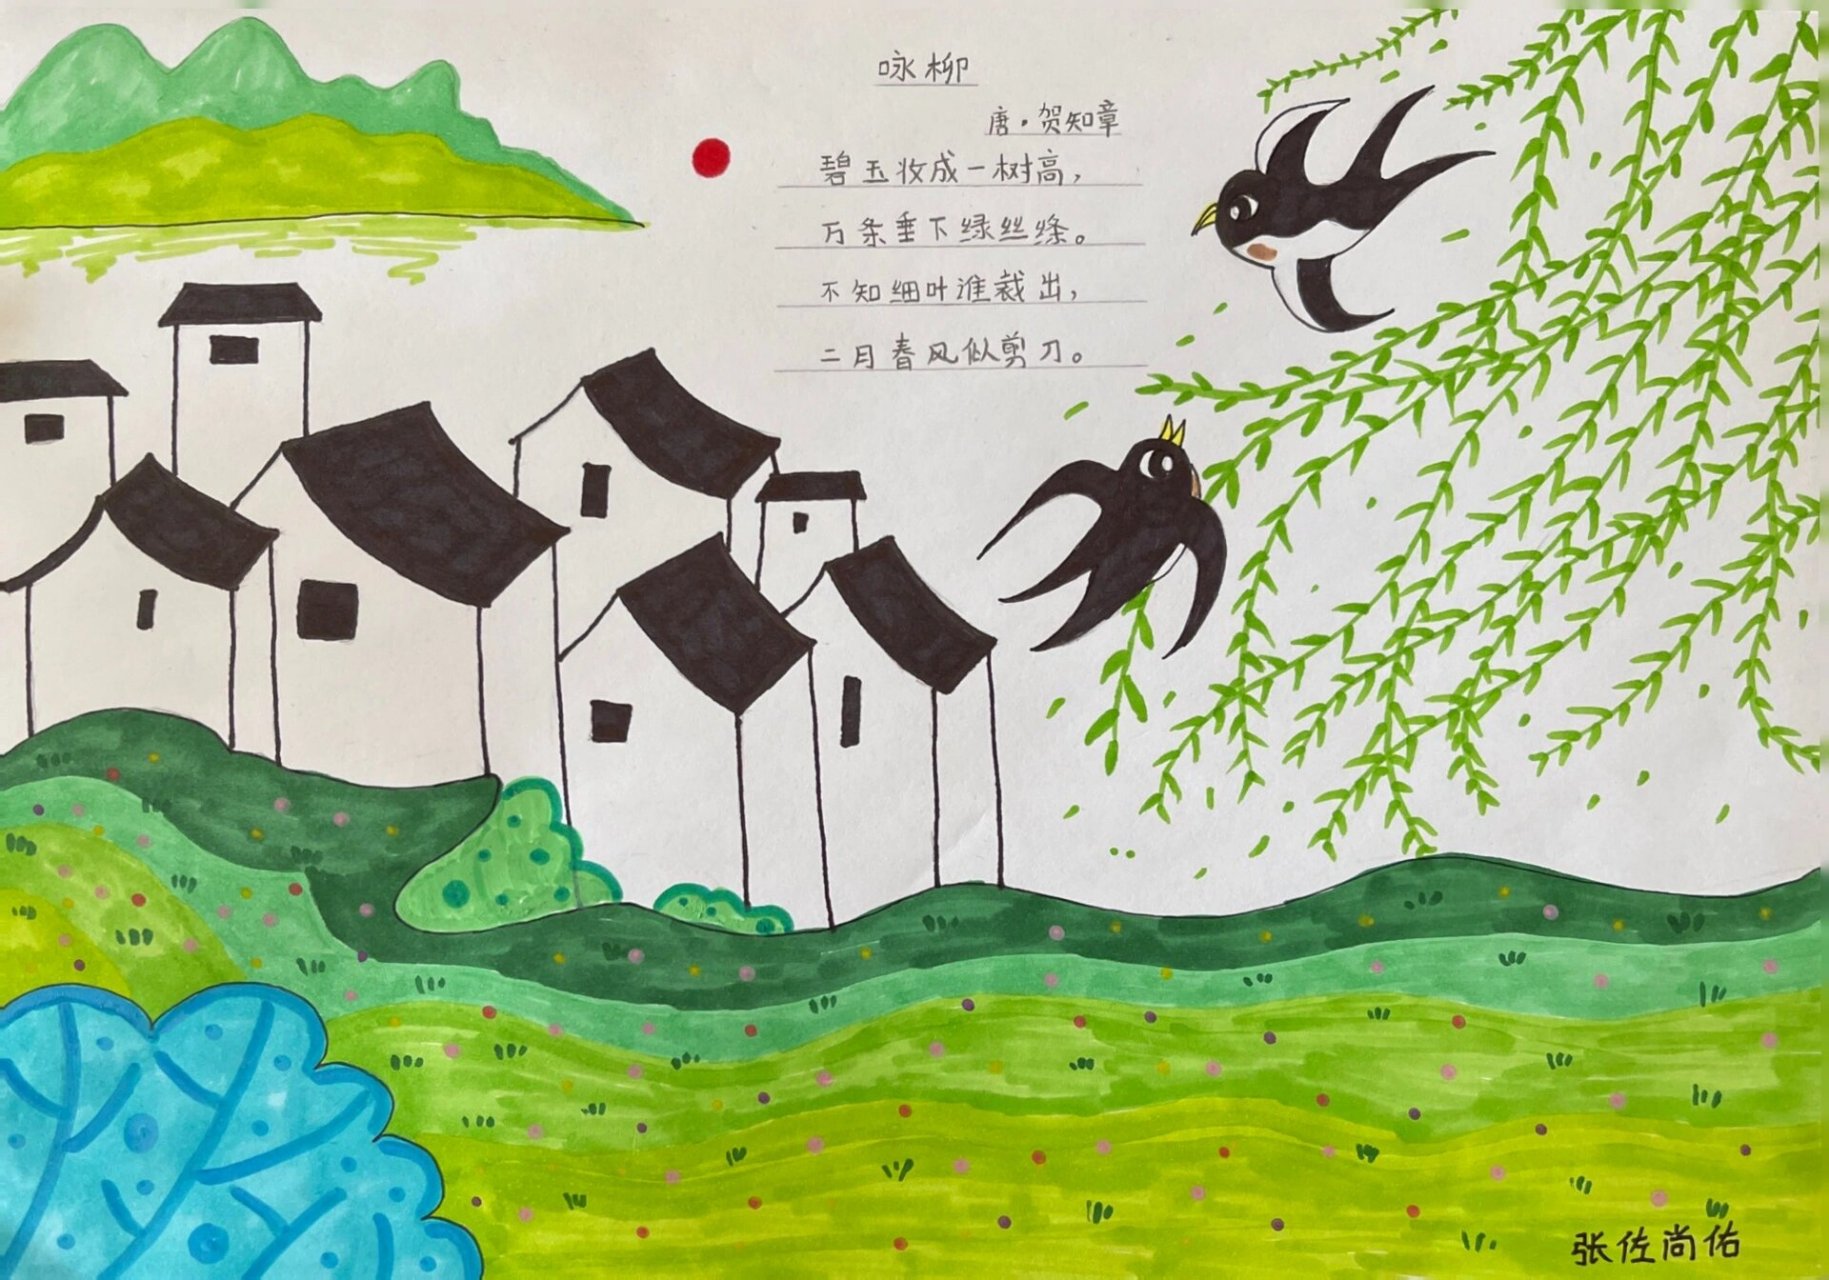 咏柳
唐·贺知章
碧玉妆成一树高，
万条垂下绿丝绦。
不知细叶谁裁出，
二月春风似剪刀。
张佐尚佑